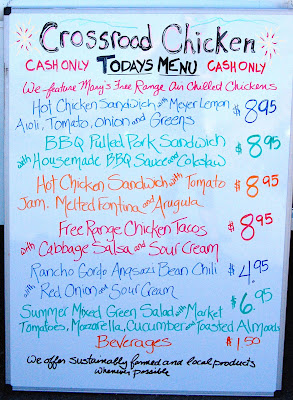 Crossroad Chicken
CASH ONLY TODAYS MENU CASH ONLY
We feature Mary's Free Range Air Chilled Chickens
Hot Chicken Sandwich with Meyer Lemon
Aioli, Tomato, Onion and Greens $8.95
BBQ Pulled Pork Sandwich
with Housemade BBQ Sauce and Coleslaw $8.95
Hot Chicken Sandwich with Tomato
Jam, Melted Fontina and Arugula $8.95
Free Range Chicken Tacos
with Cabbage Salsa and Sour Cream $8.95
Rancho Gordo Anasazi Bean Chili
with Red Onion and Sour Cream $4.95
Summer Mixed Green Salad with Market
Tomatoes, Mozarella, Cucumber and Toasted Almonds $6.95
Beverages $1.50
We offer sustainably farmed and local products
whenever possible